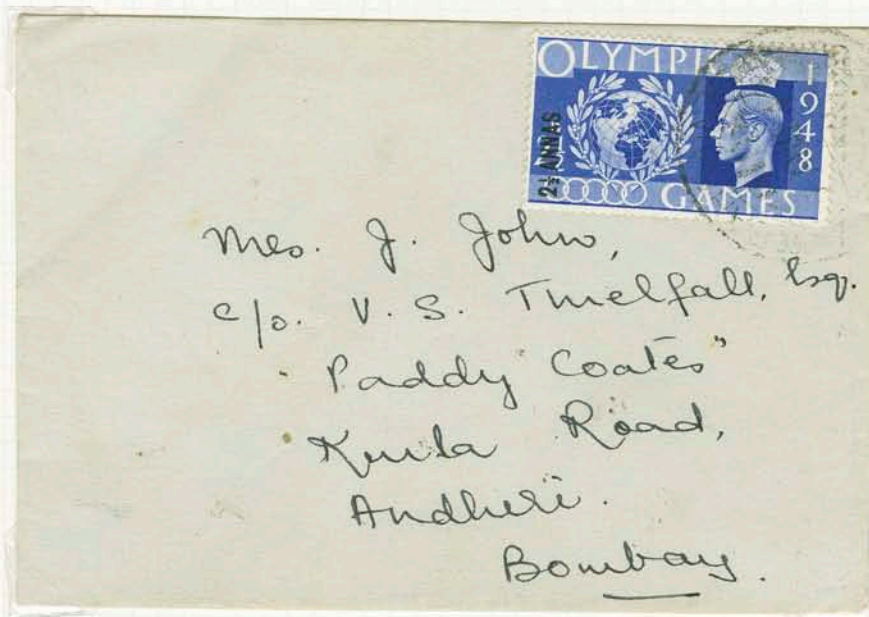 OLYMPIC
1948
2½ ANNAS
GAMES
Mrs. J. John,
c/o. V. S. Thielfall, Esq.
"Paddy Coates"
Kurla Road,
Andheri.
Bombay.